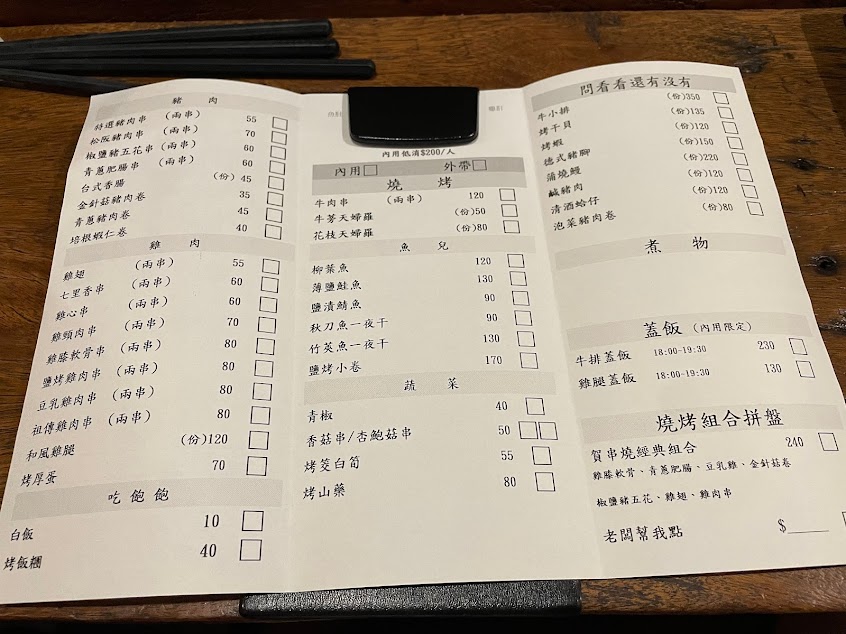 豬 肉
特選豬肉串 (兩串) 55
松阪豬肉串 (兩串) 70
椒鹽豬五花串 (兩串) 60
青蔥肥腸串 (兩串) 60
台式香腸 (份) 45
金針菇豬肉卷 35
青蔥豬肉卷 45
培根蝦仁卷 40
雞 肉
雞翅 (兩串) 55
七里香串 (兩串) 60
雞心串 (兩串) 60
雞頸肉串 (兩串) 70
雞膝軟骨串 (兩串) 80
鹽烤雞肉串 (兩串) 80
豆乳雞肉串 (兩串) 80
祖傳雞肉串 (兩串) 80
和風雞腿 (份)120
烤厚蛋 70
吃 飽 飽
白飯 10
烤飯糰 40
內用低消$200/人
內用 外帶
燒 烤
牛肉串 (兩串) 120
牛蒡天婦羅 (份)50
花枝天婦羅 (份)80
魚 兒
柳葉魚 120
薄鹽鮭魚 130
鹽漬鯖魚 90
秋刀魚一夜干 90
竹莢魚一夜干 130
鹽烤小卷 170
蔬 菜
青椒 40
香菇串/杏鮑菇串 50
烤筊白筍 55
烤山藥 80
問看看還有沒有
牛小排 (份)350
烤干貝 (份)135
烤蝦 (份)120
德式豬腳 (份)150
蒲燒鰻 (份)220
鹹豬肉 (份)120
清酒蛤仔 (份)120
泡菜豬肉卷 (份)80
煮 物
蓋飯 (內用限定)
牛排蓋飯 18:00-19:30 230
雞腿蓋飯 18:00-19:30 130
燒烤組合拼盤
賀串燒經典組合 240
雞膝軟骨、青蔥肥腸、豆乳雞、金針菇卷
椒鹽豬五花、雞翅、雞肉串
老闆幫我點 $____